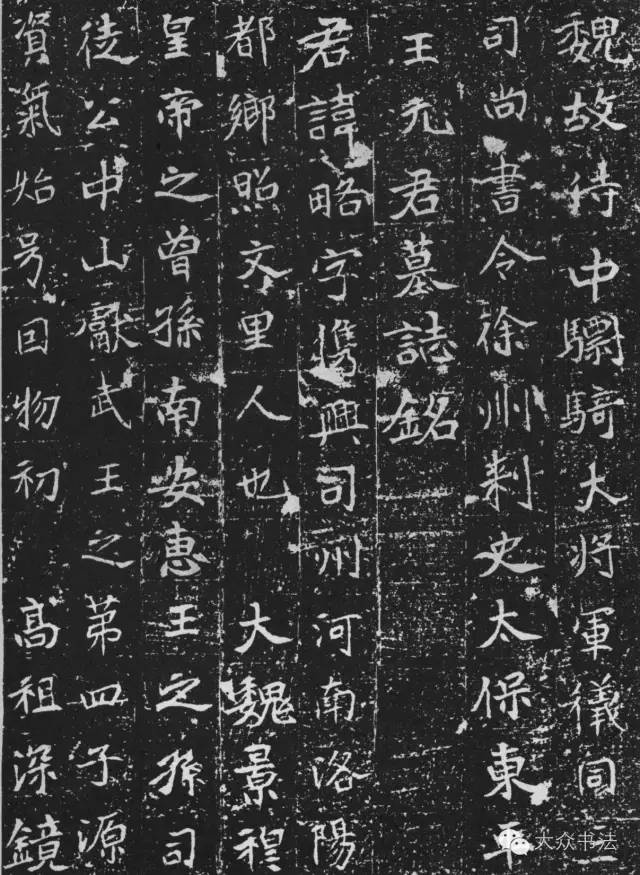 魏故侍中驃騎大將軍儀同三
司尚書令徐州刺史太保東平
王元君墓誌銘
君諱略字儁興司州河南洛陽
都鄉照文里人也 大魏景穆
皇帝之曾孫南安惠王之孫司
徒公中山獻武王之第四子源
資氣始号回物初 高祖深鏡
大众书法